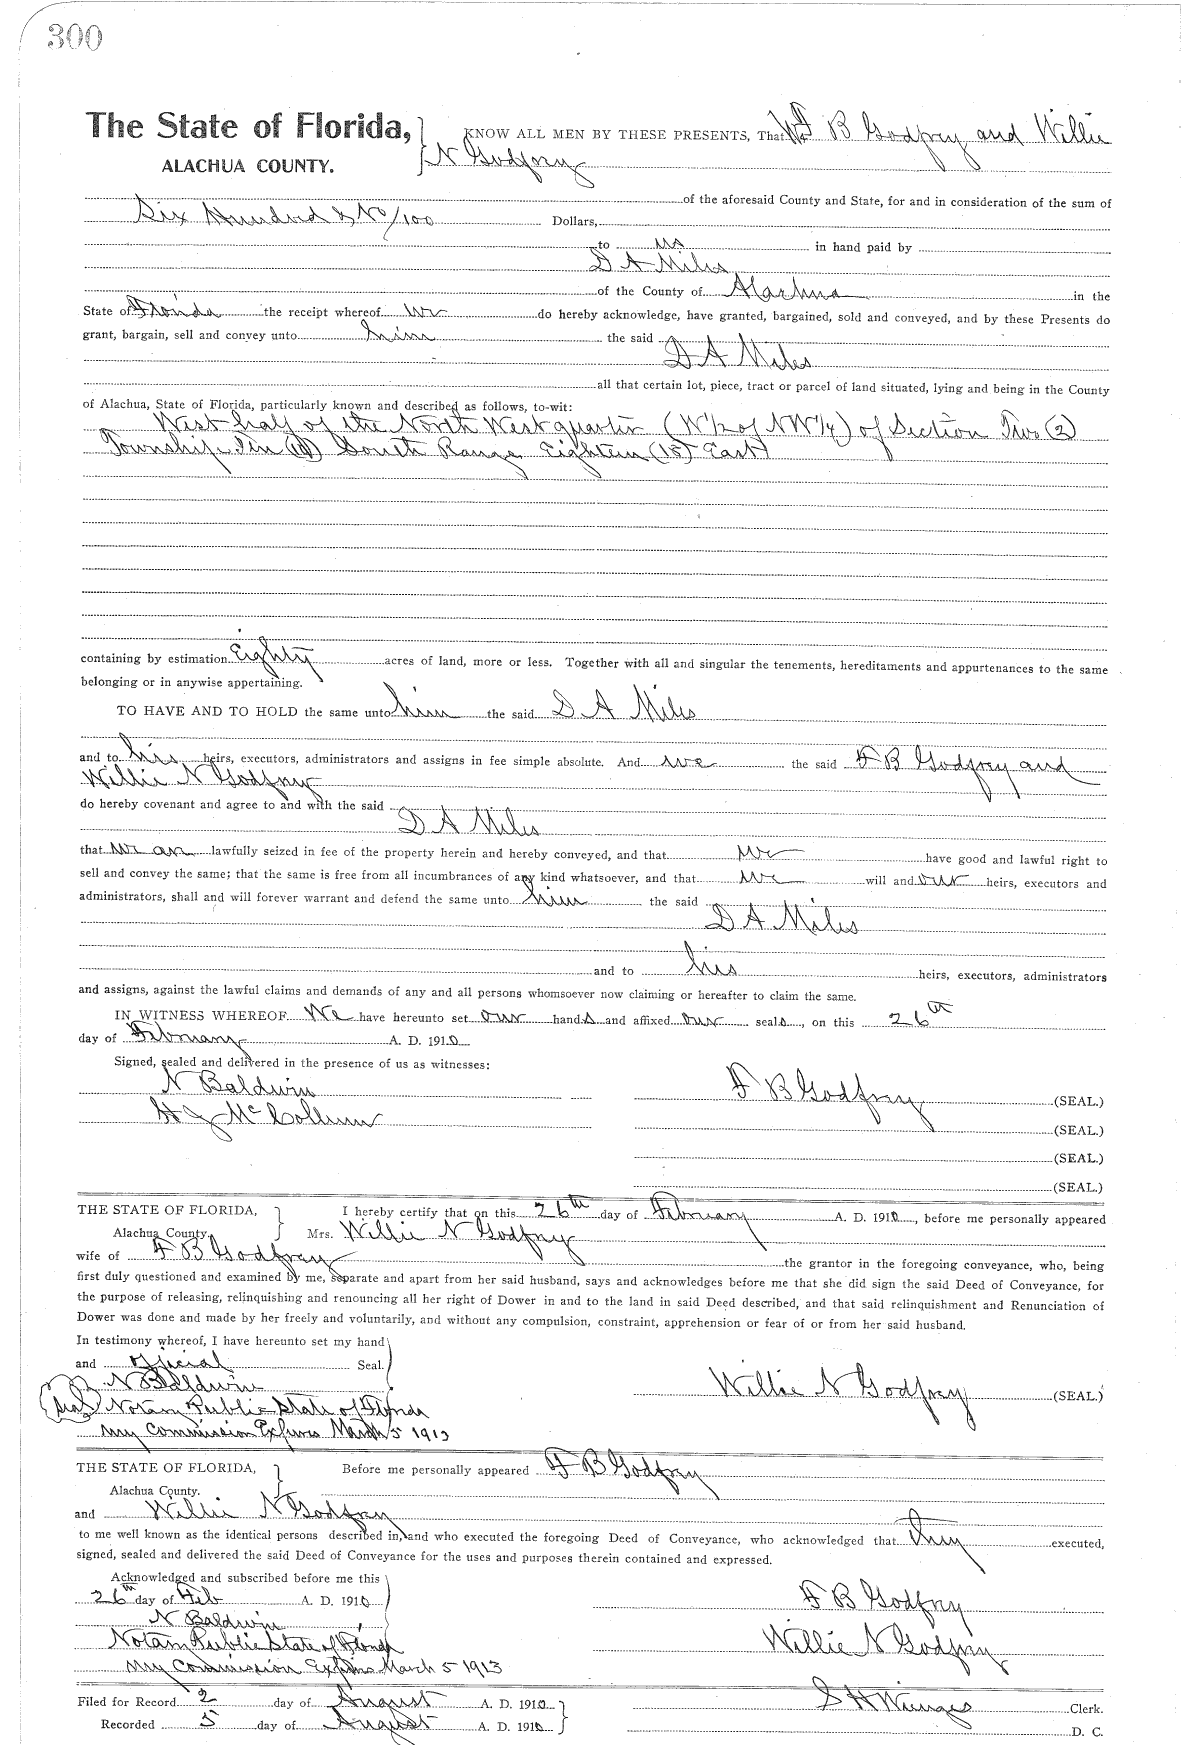 300
The State of Florida,
ALACHUA COUNTY.
KNOW ALL MEN BY THESE PRESENTS, That We F B Godfrey and Willie
N Godfrey
of the aforesaid County and State, for and in consideration of the sum of
Six Hundred & No/100 Dollars,
to us in hand paid by
D A Miles
of the County of Alachua in the
State of Florida the receipt whereof we do hereby acknowledge, have granted, bargained, sold and conveyed, and by these Presents do
grant, bargain, sell and convey unto him the said
D A Miles
all that certain lot, piece, tract or parcel of land situated, lying and being in the County
of Alachua, State of Florida, particularly known and described as follows, to-wit:
West half of the North West quarter (W 1/2 of NW 1/4) of Section Two (2)
Township Ten (10) South Range Eighteen (18) East
containing by estimation Eighty acres of land, more or less. Together with all and singular the tenements, hereditaments and appurtenances to the same
belonging or in anywise appertaining.
TO HAVE AND TO HOLD the same unto him the said D A Miles
and to his heirs, executors, administrators and assigns in fee simple absolute. And we the said F B Godfrey and
Willie N Godfrey
do hereby covenant and agree to and with the said
D A Miles
that we are lawfully seized in fee of the property herein and hereby conveyed, and that we have good and lawful right to
sell and convey the same; that the same is free from all incumbrances of any kind whatsoever, and that we will and our heirs, executors and
administrators, shall and will forever warrant and defend the same unto him the said
D A Miles
and to his heirs, executors, administrators
and assigns, against the lawful claims and demands of any and all persons whomsoever now claiming or hereafter to claim the same.
IN WITNESS WHEREOF We have hereunto set our hands and affixed our seals, on this 26th
day of February A. D. 1910
Signed, sealed and delivered in the presence of us as witnesses:
N Baldwin
H J McCollum
F B Godfrey (SEAL.)
(SEAL.)
(SEAL.)
(SEAL.)
THE STATE OF FLORIDA,
Alachua County.
I hereby certify that on this 26th day of February A. D. 1910, before me personally appeared
Mrs. Willie N Godfrey
wife of F B Godfrey the grantor in the foregoing conveyance, who, being
first duly questioned and examined by me, separate and apart from her said husband, says and acknowledges before me that she did sign the said Deed of Conveyance, for
the purpose of releasing, relinquishing and renouncing all her right of Dower in and to the land in said Deed described, and that said relinquishment and Renunciation of
Dower was done and made by her freely and voluntarily, and without any compulsion, constraint, apprehension or fear of or from her said husband.
In testimony whereof, I have hereunto set my hand
and official Seal.
N Baldwin
Seal Notary Public State of Florida
My Commission Expires March 5 1913
Willie N Godfrey (SEAL.)
THE STATE OF FLORIDA,
Alachua County.
Before me personally appeared F B Godfrey
and Willie N Godfrey
to me well known as the identical persons described in, and who executed the foregoing Deed of Conveyance, who acknowledged that they executed,
signed, sealed and delivered the said Deed of Conveyance for the uses and purposes therein contained and expressed.
Acknowledged and subscribed before me this
26th day of Feb A. D. 1910
N Baldwin
Notary Public State of Florida
My Commission Expires March 5 1913
F B Godfrey
Willie N Godfrey
Filed for Record 2 day of August A. D. 1910
Recorded 5 day of August A. D. 1910
S H Wienges Clerk.
D. C.